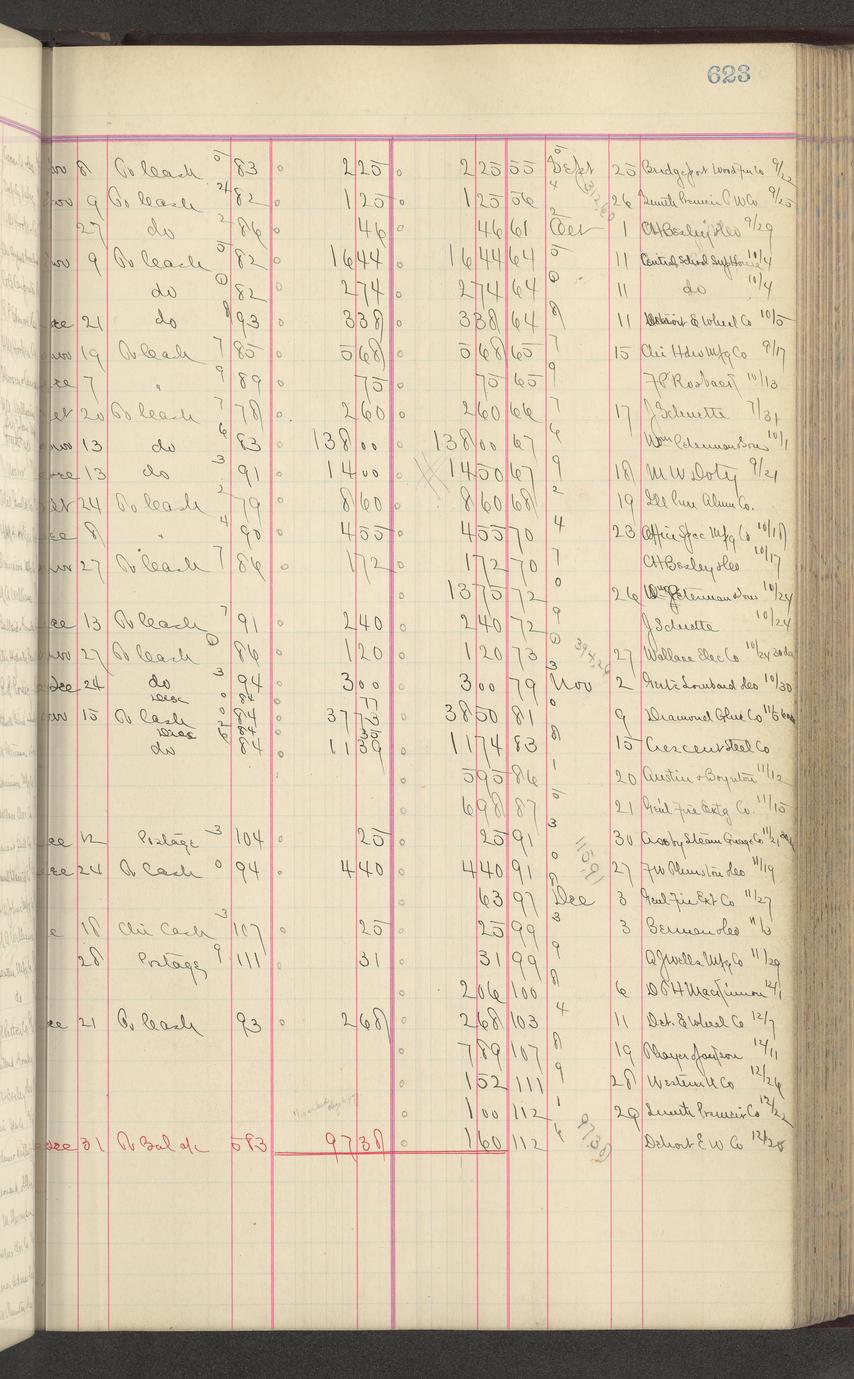 623
Nov 8 To Cash 5 83 225 225 55 Sept 5 25 Bridgeport Wood Fin Co 9/22
Nov 9 To Cash 24 82 125 125 56 4 26 Smith Premier T W Co 9/25
27 do 2 86 46 46 61 Oct 2 1 CH Besly & Co 9/29
Nov 9 To Cash 5 82 1644 1644 64 5 11 Central School Supp House 10/4
do 0 82 274 274 64 0 11 do 10/4
Dec 21 do 8 93 338 338 64 8 11 Detroit E Wheel Co 10/5
Nov 19 To Cash 7 85 568 568 65 7 15 Chi Hdw Mfg Co 9/17
Dec 7 " 9 89 75 75 65 9 10/13
Oct 20 To Cash 7 78 260 260 66 7 17 J Schuette 7/31
Nov 13 do 6 83 13800 13800 67 6 Wm Peterman Sons 10/1
Dec 13 do 3 91 1400 1450 67 9 18 M W Doty 9/21
Oct 24 To Cash 2 79 860 860 68 2 19 Ill Pure Alum Co.
Dec 8 " 4 90 455 455 70 4 23 Office Spec Mfg Co 10/18
Nov 27 To Cash 7 86 172 172 70 7 CH Besly & Co 10/17
1375 72 0 26 Wm Peterman Sons 10/24
Dec 13 To Cash 7 91 240 240 72 9 J Schuette 10/24
Nov 27 To Cash 0 86 120 120 73 0 27 Wallace Elec Co 10/24 30da
Dec 24 do 3 94 300 300 79 3 Nov 2 Lombard & Co 10/30
Disc 0 84 77
Nov 15 To Cash 0 84 3773 3850 81 0 9 Diamond Glue Co 11/5
Disc 2 84 35
do 6 84 1139 1174 83 8 15 Crescent Steel Co
595 86 1 20 Austin & Boynton 11/12
698 87 5 21 Genl Fire Extg Co. 11/15
Dec 12 Postage 3 104 25 25 91 3 30 Crosby Steam Gauge Co 11/21
Dec 24 To Cash 0 94 440 440 91 0 27 11/19
63 97 8 Dec 3 Genl Fire Ext Co 11/27
18 Chi Cash 3 107 25 25 99 3 3 Berman & Co
28 Postage 9 111 31 31 99 9 A J Wells Mfg Co 11/29
206 100 8 6 D P H MacKinnon 12/1
Dec 21 To Cash 93 268 268 103 4 11 Det. E Wheel Co 12/7
789 107 8 19 12/11
152 111 9 28 Western U Co 12/26
100 112 1 29 Smith Premier Co 12/22
Dec 31 To Bal a/c 583 9738 160 112 6 Detroit E W Co 12/28
9738